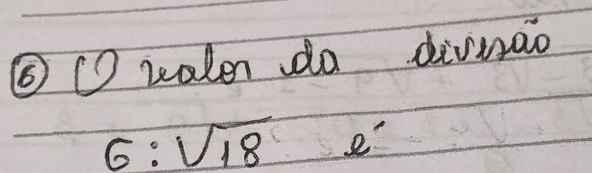 ⑥ O valor da divisão
6 : √18 é